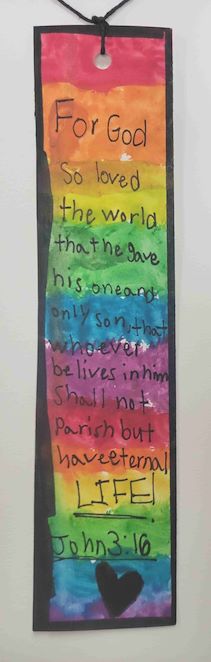 For God
So loved
the world
that he gave
his one and
only son, that
whoever
be lives in him
Shall not
Parish but
have eternal
LIFE!
John 3:16